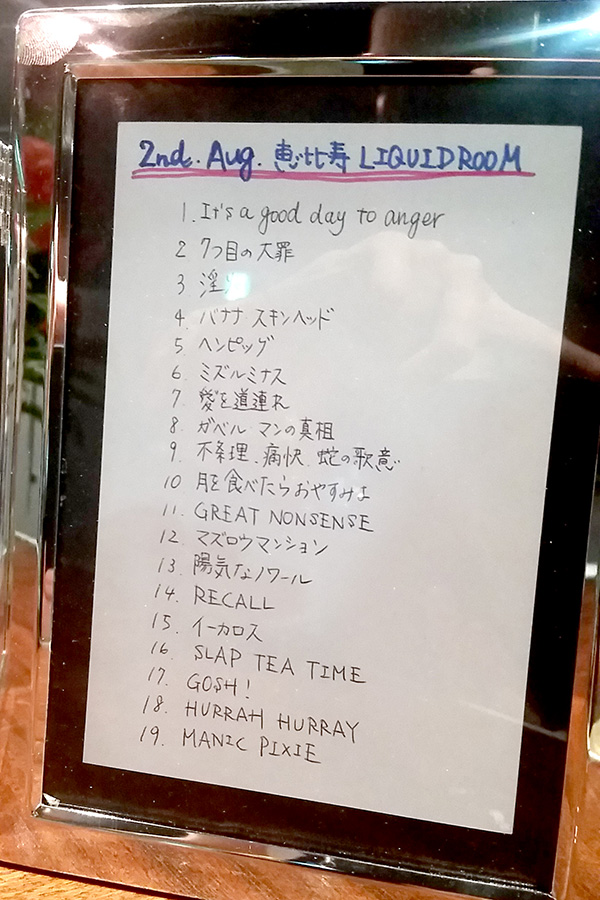 2nd. Aug. 恵比寿 LIQUIDROOM
1. It's a good day to anger
2 7つ目の大罪
3 淫
4. バナナ スキンヘッド
5. ヘンピッグ
6. ミズルミナス
7. 愛を道連れ
8. ガベル マンの真相
9. 不条理、痛快、蛇の歌意
10 月を食べたらおやすみよ
11. GREAT NONSENSE
12. マズロウマンション
13. 陽気なノワール
14. RECALL
15. イーカロス
16. SLAP TEA TIME
17. GOSH!
18. HURRAH HURRAY
19. MANIC PIXIE